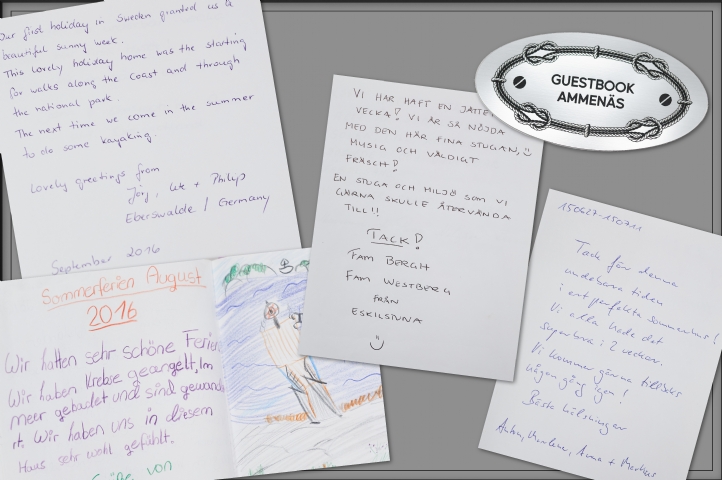 Our first holiday in Sweden granted us a
beautiful sunny week.
This lovely holiday home was the starting
for walks along the Coast and through
the national park.
The next time we come in the summer
to do some kayaking.
Lovely greetings from
Jörg, Ute + Philip
Eberswalde / Germany
September 2016
Sommerferien August
2016
Wir hatten sehr schöne Ferien
Wir haben Krebse geangelt, Im
meer gebadet und sind gewande
rt. Wir haben uns in diesem
Haus sehr wohl gefühlt.
Grüße von
VI HAR HAFT EN JÄTTE
VECKA! VI ÄR SÅ NÖJDA
MED DEN HÄR FINA STUGAN,
MYSIG OCH VÄLDIGT
FRÄSCH!
EN STUGA OCH MILJÖ SOM VI
GÄRNA SKULLE ÅTERVÄNDA
TILL!!
TACK!
FAM BERGH
FAM WESTBERG
FRÅN
ESKILSTUNA
GUESTBOOK
AMMENÄS
150627-150711
Tack för denna
underbara tiden
i ert perfekta sommarhus!
Vi alla hade det
superbra i 2 veckor.
Vi kommer gärna tillbaks
någon gång igen!
Bästa hälsningar
Anton, Marlene, Anna + Markus